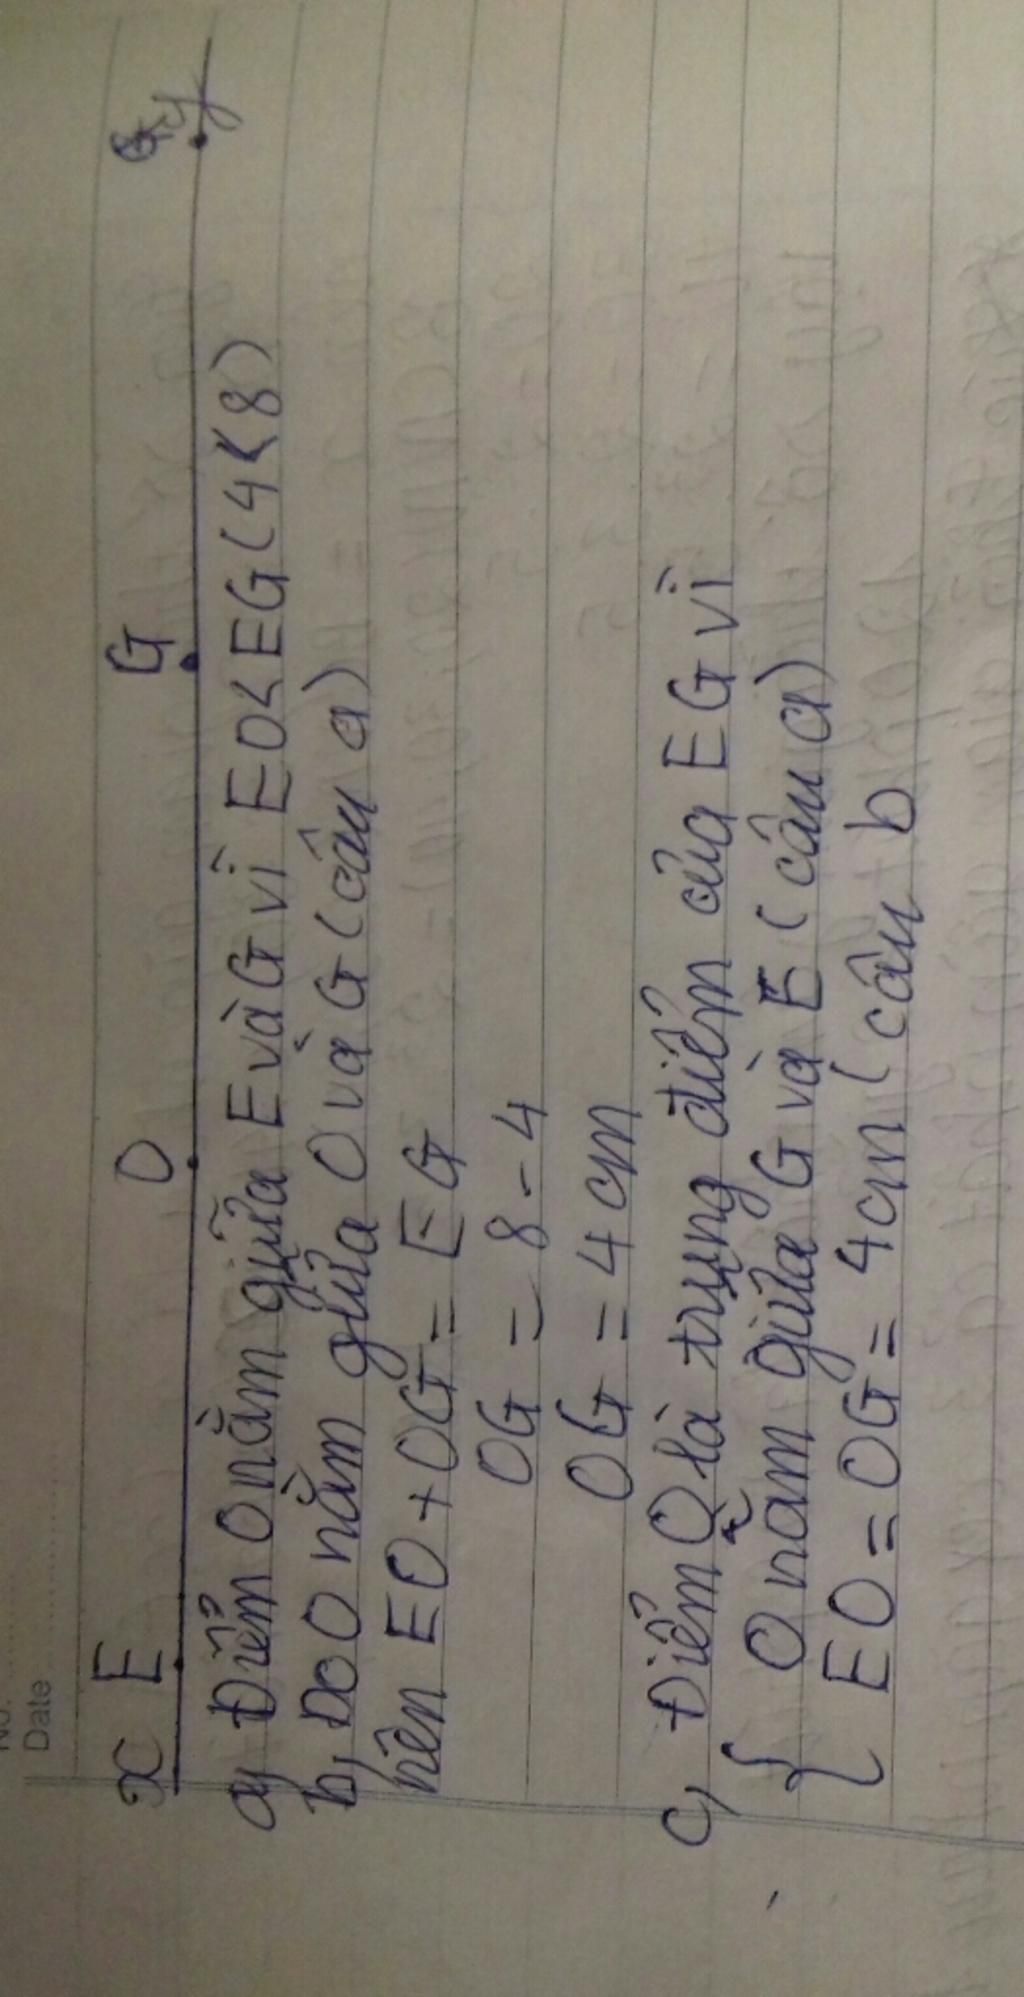 Date
x E O G y
a, Điểm O nằm giữa E và G vì EO<EG (4<8)
b, DO O nằm giữa O và G (câu a)
nên EO + OG = EG
OG = 8 - 4
OG = 4 cm
c, Điểm O là trung điểm của EG vì
{ O nằm giữa G và E (câu a)
EO = OG = 4cm (câu b